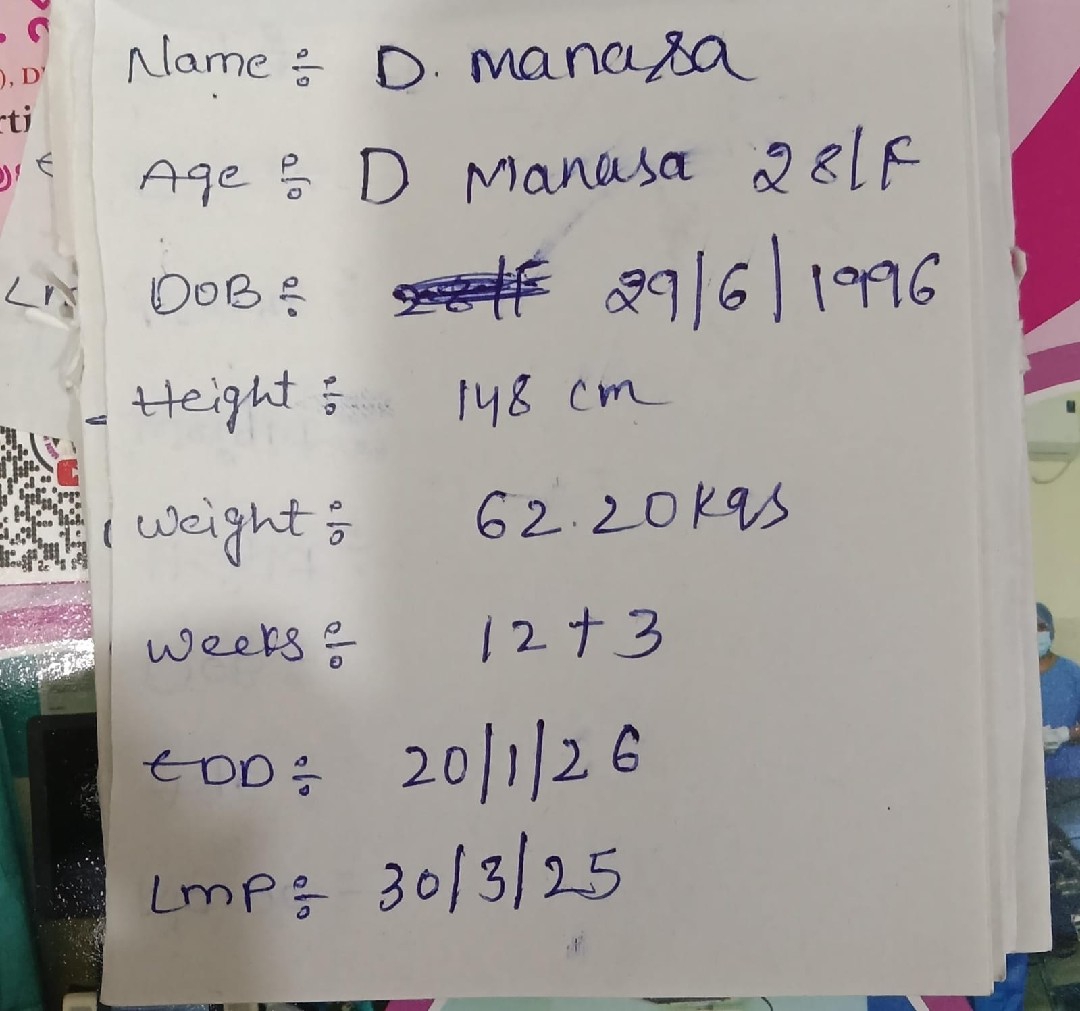 Name ÷ D. Manasa
Age ÷ D Manasa 28/F
DOB ÷ 29/6/1996
Height ÷ 148 cm
Weight ÷ 62.20 Kgs
Weeks ÷ 12 + 3
EDD ÷ 20/1/26
LMP ÷ 30/3/25